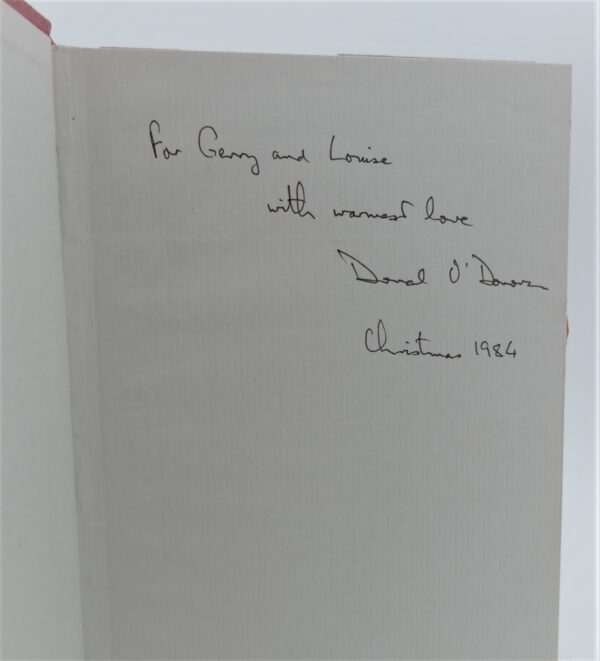 For Gerry and Louise
with warmest love
Donal O'Donovan
Christmas 1984